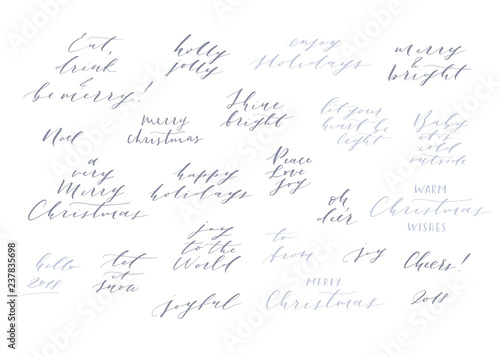 Eat,
drink
&
be merry!
holly
jolly
enjoy
Holidays
merry
&
bright
Noel
merry
christmas
Shine
bright
let your
heart be
light
Baby
it's
cold
outside
a
very
Merry
Christmas
happy
holidays
Peace
Love
Joy
oh
deer
WARM
Christmas
WISHES
hello
2018
let
it
snow
joy
to the
World
to
from
joy
Cheers!
joyful
MERRY
Christmas
2018
Adobe Stock | #237835698